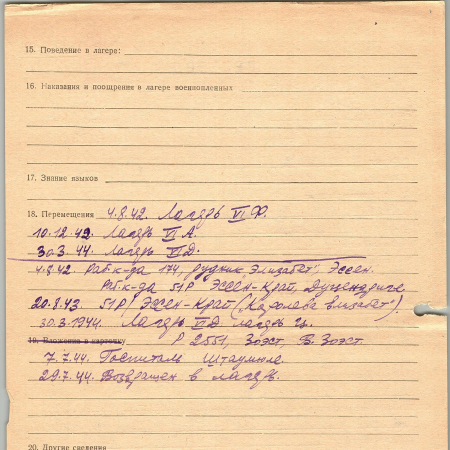 15. Поведение в лагере:
16. Наказания и поощрения в лагере военнопленных
17. Знание языков
18. Перемещения 4.8.42. Лагерь VI Ф.
10.12.42. Лагерь VI А.
30.3.44. Лагерь VI Д.
4.8.42 Раб. к-да 174, рудник "Элизабет", Эссен.
Раб. к-да 51Р Эссен-Крап,
20.8.43. 51Р Эссен-Крап (Королева Елизабет).
30.3.1944. Лагерь VI D лагерь ц.
19. Вложения в карточку Р 2551, Зоэст, В. Зоэст.
7.7.44. Госпиталь Штаумюле.
29.7.44. Возвращен в лагерь.
20. Другие сведения